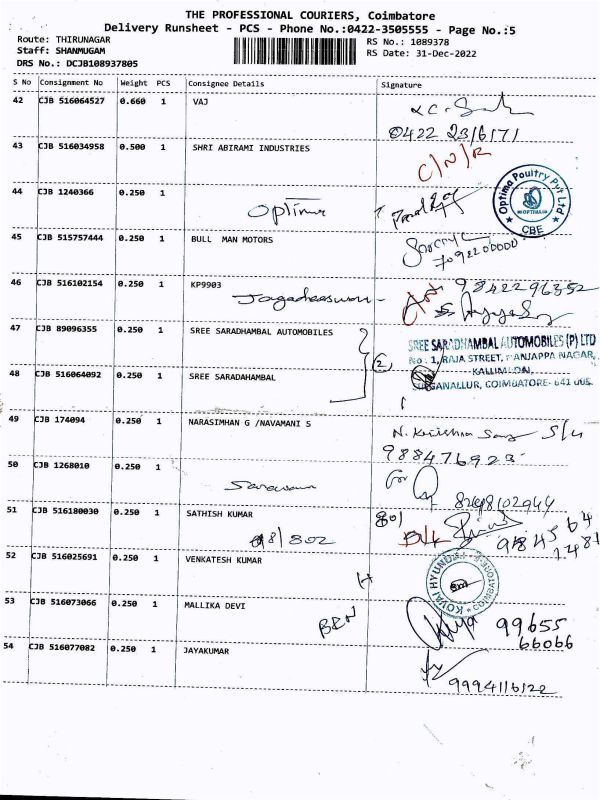 THE PROFESSIONAL COURIERS, Coimbatore
Delivery Runsheet - PCS - Phone No.:0422-3505555 - Page No.:5
Route: THIRUNAGAR
Staff: SHANMUGAM
DRS No.: DCJB108937805
RS No.: 1089378
RS Date: 31-Dec-2022
S No Consignment No Weight PCS Consignee Details Signature
42 CJB 516064527 0.660 1 VAJ
0422 2316171
43 CJB 516034958 0.500 1 SHRI ABIRAMI INDUSTRIES
C/N/R
44 CJB 1240366 0.250 1
Optima
Optima Poultry Pvt Ltd
OPTIMA
CBE
45 CJB 515757444 0.250 1 BULL MAN MOTORS
46 CJB 516102154 0.250 1 KP9903
Jagadeeswaran
9842296352
47 CJB 89096355 0.250 1 SREE SARADHAMBAL AUTOMOBILES
SREE SARADHAMBAL AUTOMOBILES (P) LTD
No : 1, RAJA STREET, MANJAPPA NAGAR,
2
48 CJB 516064092 0.250 1 SREE SARADAHAMBAL
SINGANALLUR, COIMBATORE- 641 005.
49 CJB 174094 0.250 1 NARASIMHAN G /NAVAMANI S
N. Krishna Samy S/W
988476923
50 CJB 1268010 0.250 1
for
8248102944
51 CJB 516180030 0.250 1 SATHISH KUMAR
D/L
52 CJB 516025691 0.250 1 VENKATESH KUMAR
KOVAI HYUNDAI
COIMBATORE
H
53 CJB 516073066 0.250 1 MALLIKA DEVI
99655
66066
54 CJB 516077082 0.250 1 JAYAKUMAR
9994116122